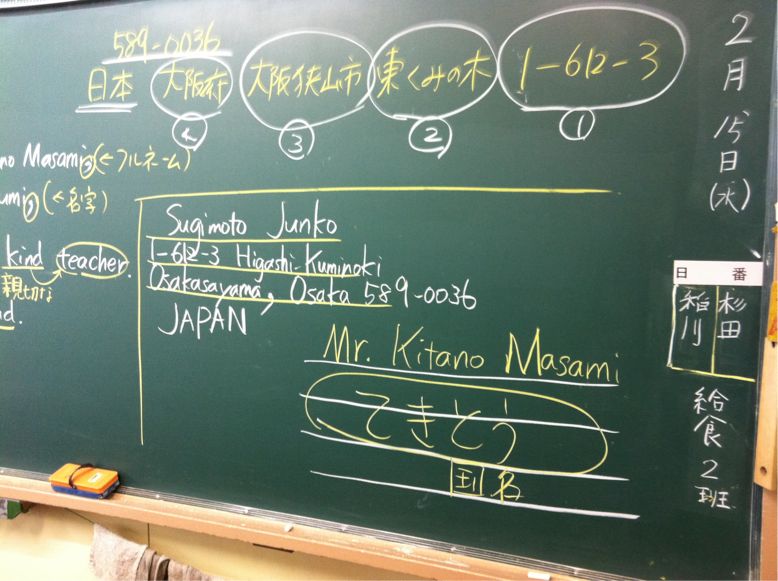 589-0036
日本 大阪府 大阪狭山市 東くみの木 1-612-3
④ ③ ② ①
no Masami③(←フルネーム)
umi②(←名字)
kind teacher.
親切な
d.
Sugimoto Junko
1-612-3 Higashi-Kuminoki
Osakasayama, Osaka 589-0036
JAPAN
Mr. Kitano Masami
てきとう
国名
2月15日(水)
日 番
杉田
稲川
給食2班